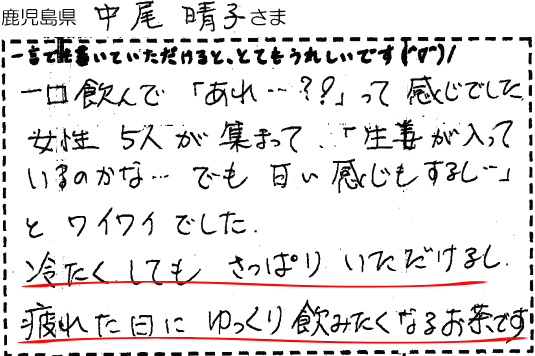 鹿児島県 中尾 晴子さま
一言で書いていただけると、とてもうれしいです(^o^)/
一口飲んで「あれ…??」って感じでした
女性 5人が集まって、「生姜が入って
いるのかな… でも 甘い感じもするし…」
と ワイワイでした.
冷たくしても さっぱり いただけるし.
疲れた日に ゆっくり飲みたくなるお茶です